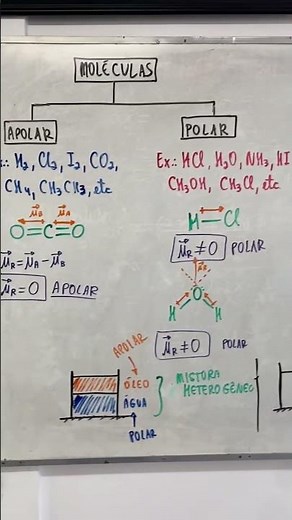 MOLÉCULAS
APOLAR
.: H₂, Cl₂, I₂, CO₂,
CH₄, CH₃CH₃, etc
μ⃗B μ⃗A
O=C=O
μ⃗R = μ⃗A - μ⃗B
μ⃗R = 0 APOLAR
POLAR
Ex.: HCl, H₂O, NH₃, HI
CH₃OH, CH₃Cl, etc
H-Cl
μ⃗R ≠ 0 POLAR
μ⃗R
O
H H
μ⃗R ≠ 0 POLAR
APOLAR
ÓLEO
ÁGUA
POLAR
MISTURA
HETEROGÊNEO